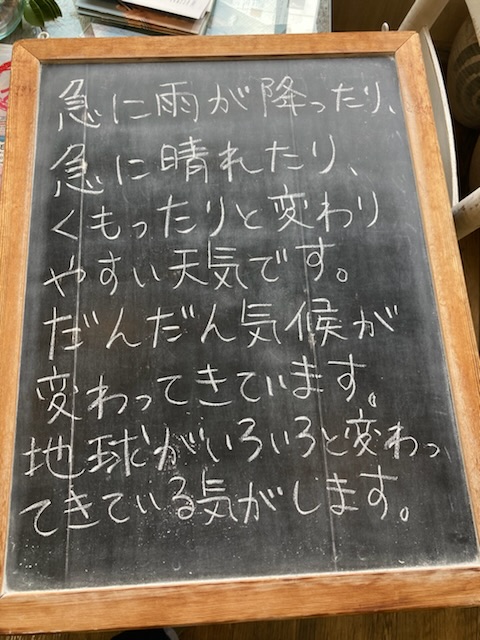 急に雨が降ったり、
急に晴れたり、
くもったりと変わり
やすい天気です。
だんだん気候が
変わってきています。
地球がいろいろと変わっ
てきている気がします。